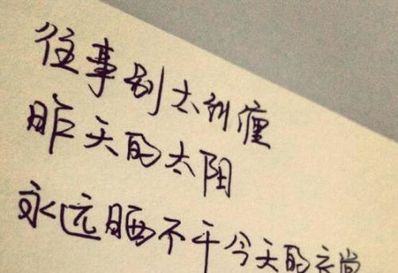 往事别太纠缠
昨天的太阳
永远晒不干今天的衣裳